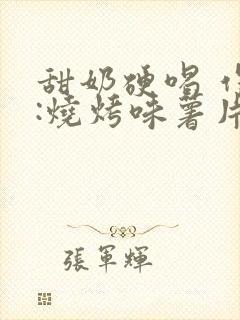 甜奶硬唱
:燒烤味薯片
張軍輝